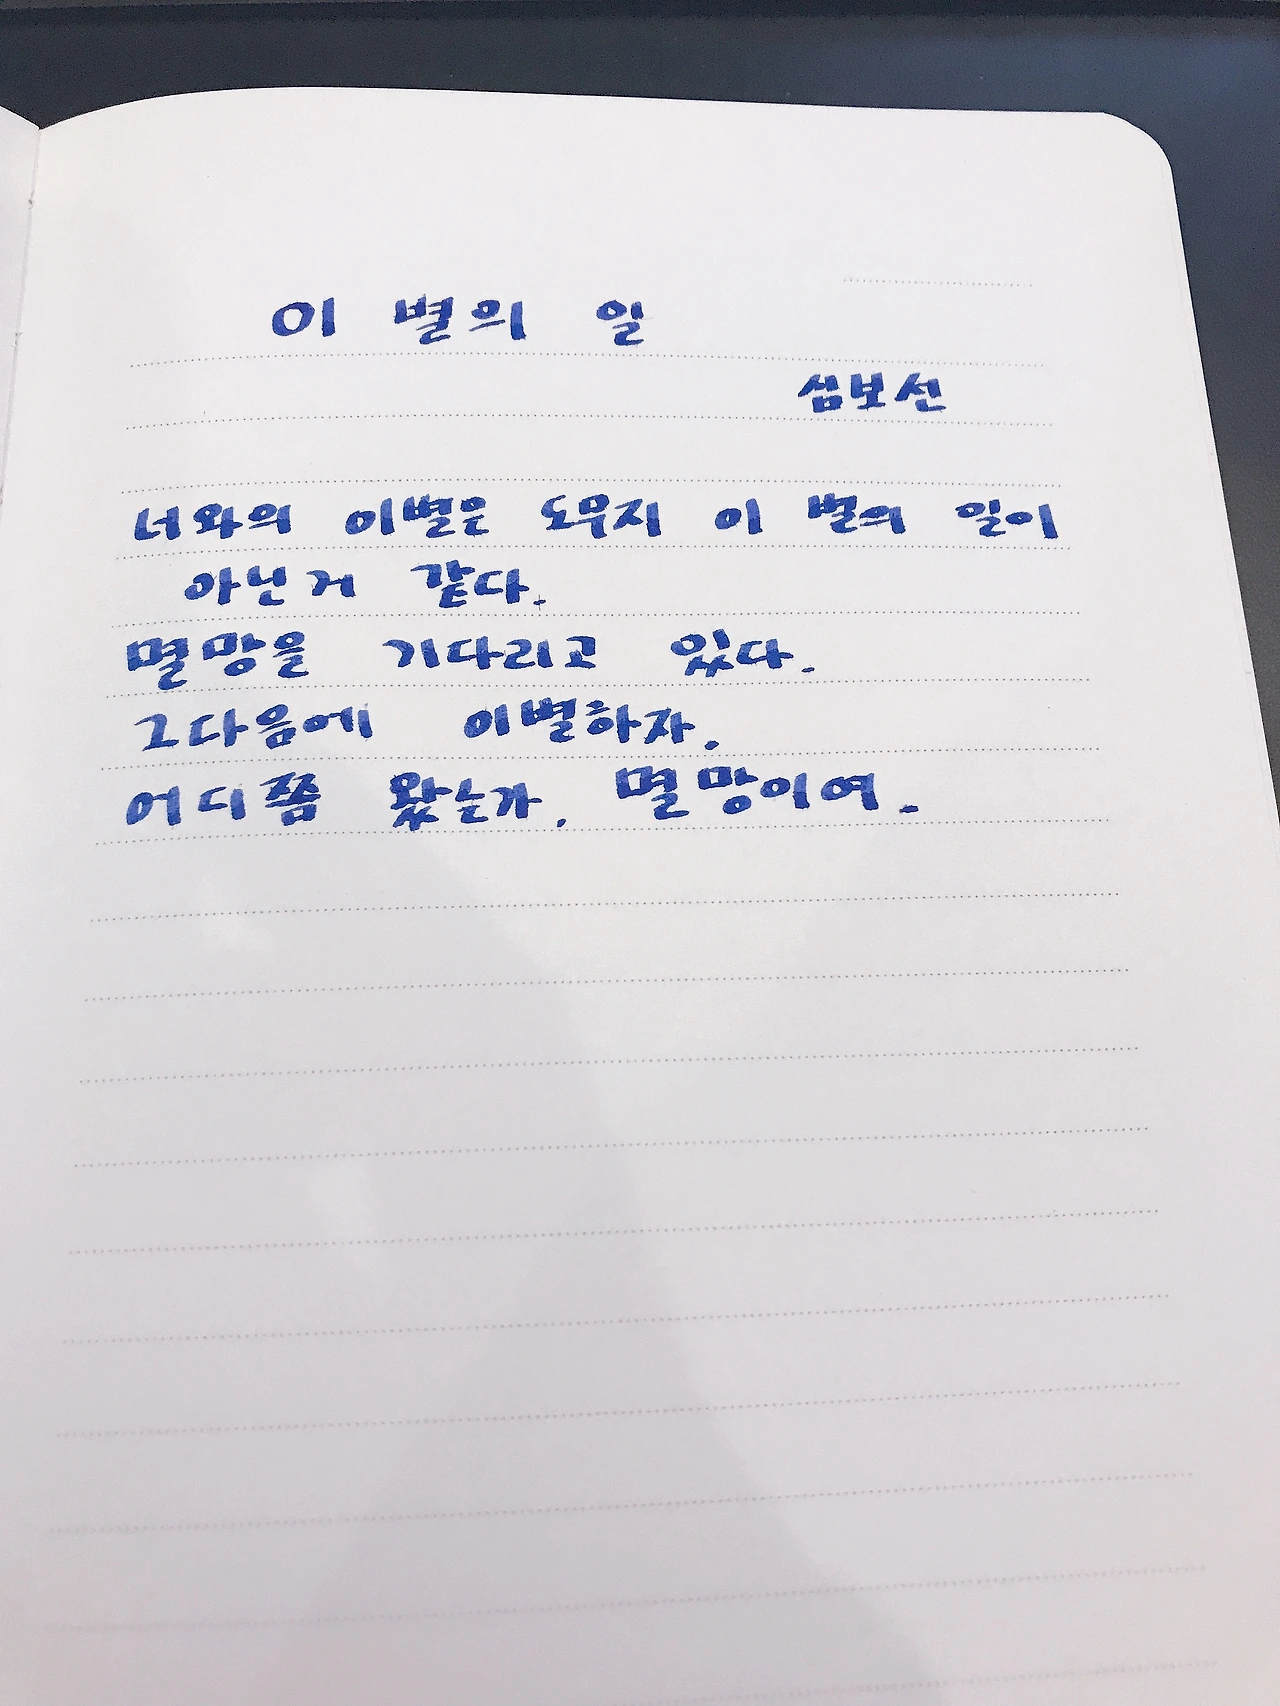 이 별의 일
심보선
너와의 이별은 도무지 이 별의 일이
아닌거 같다.
멸망을 기다리고 있다.
그다음에 이별하자.
어디쯤 왔는가, 멸망이여.